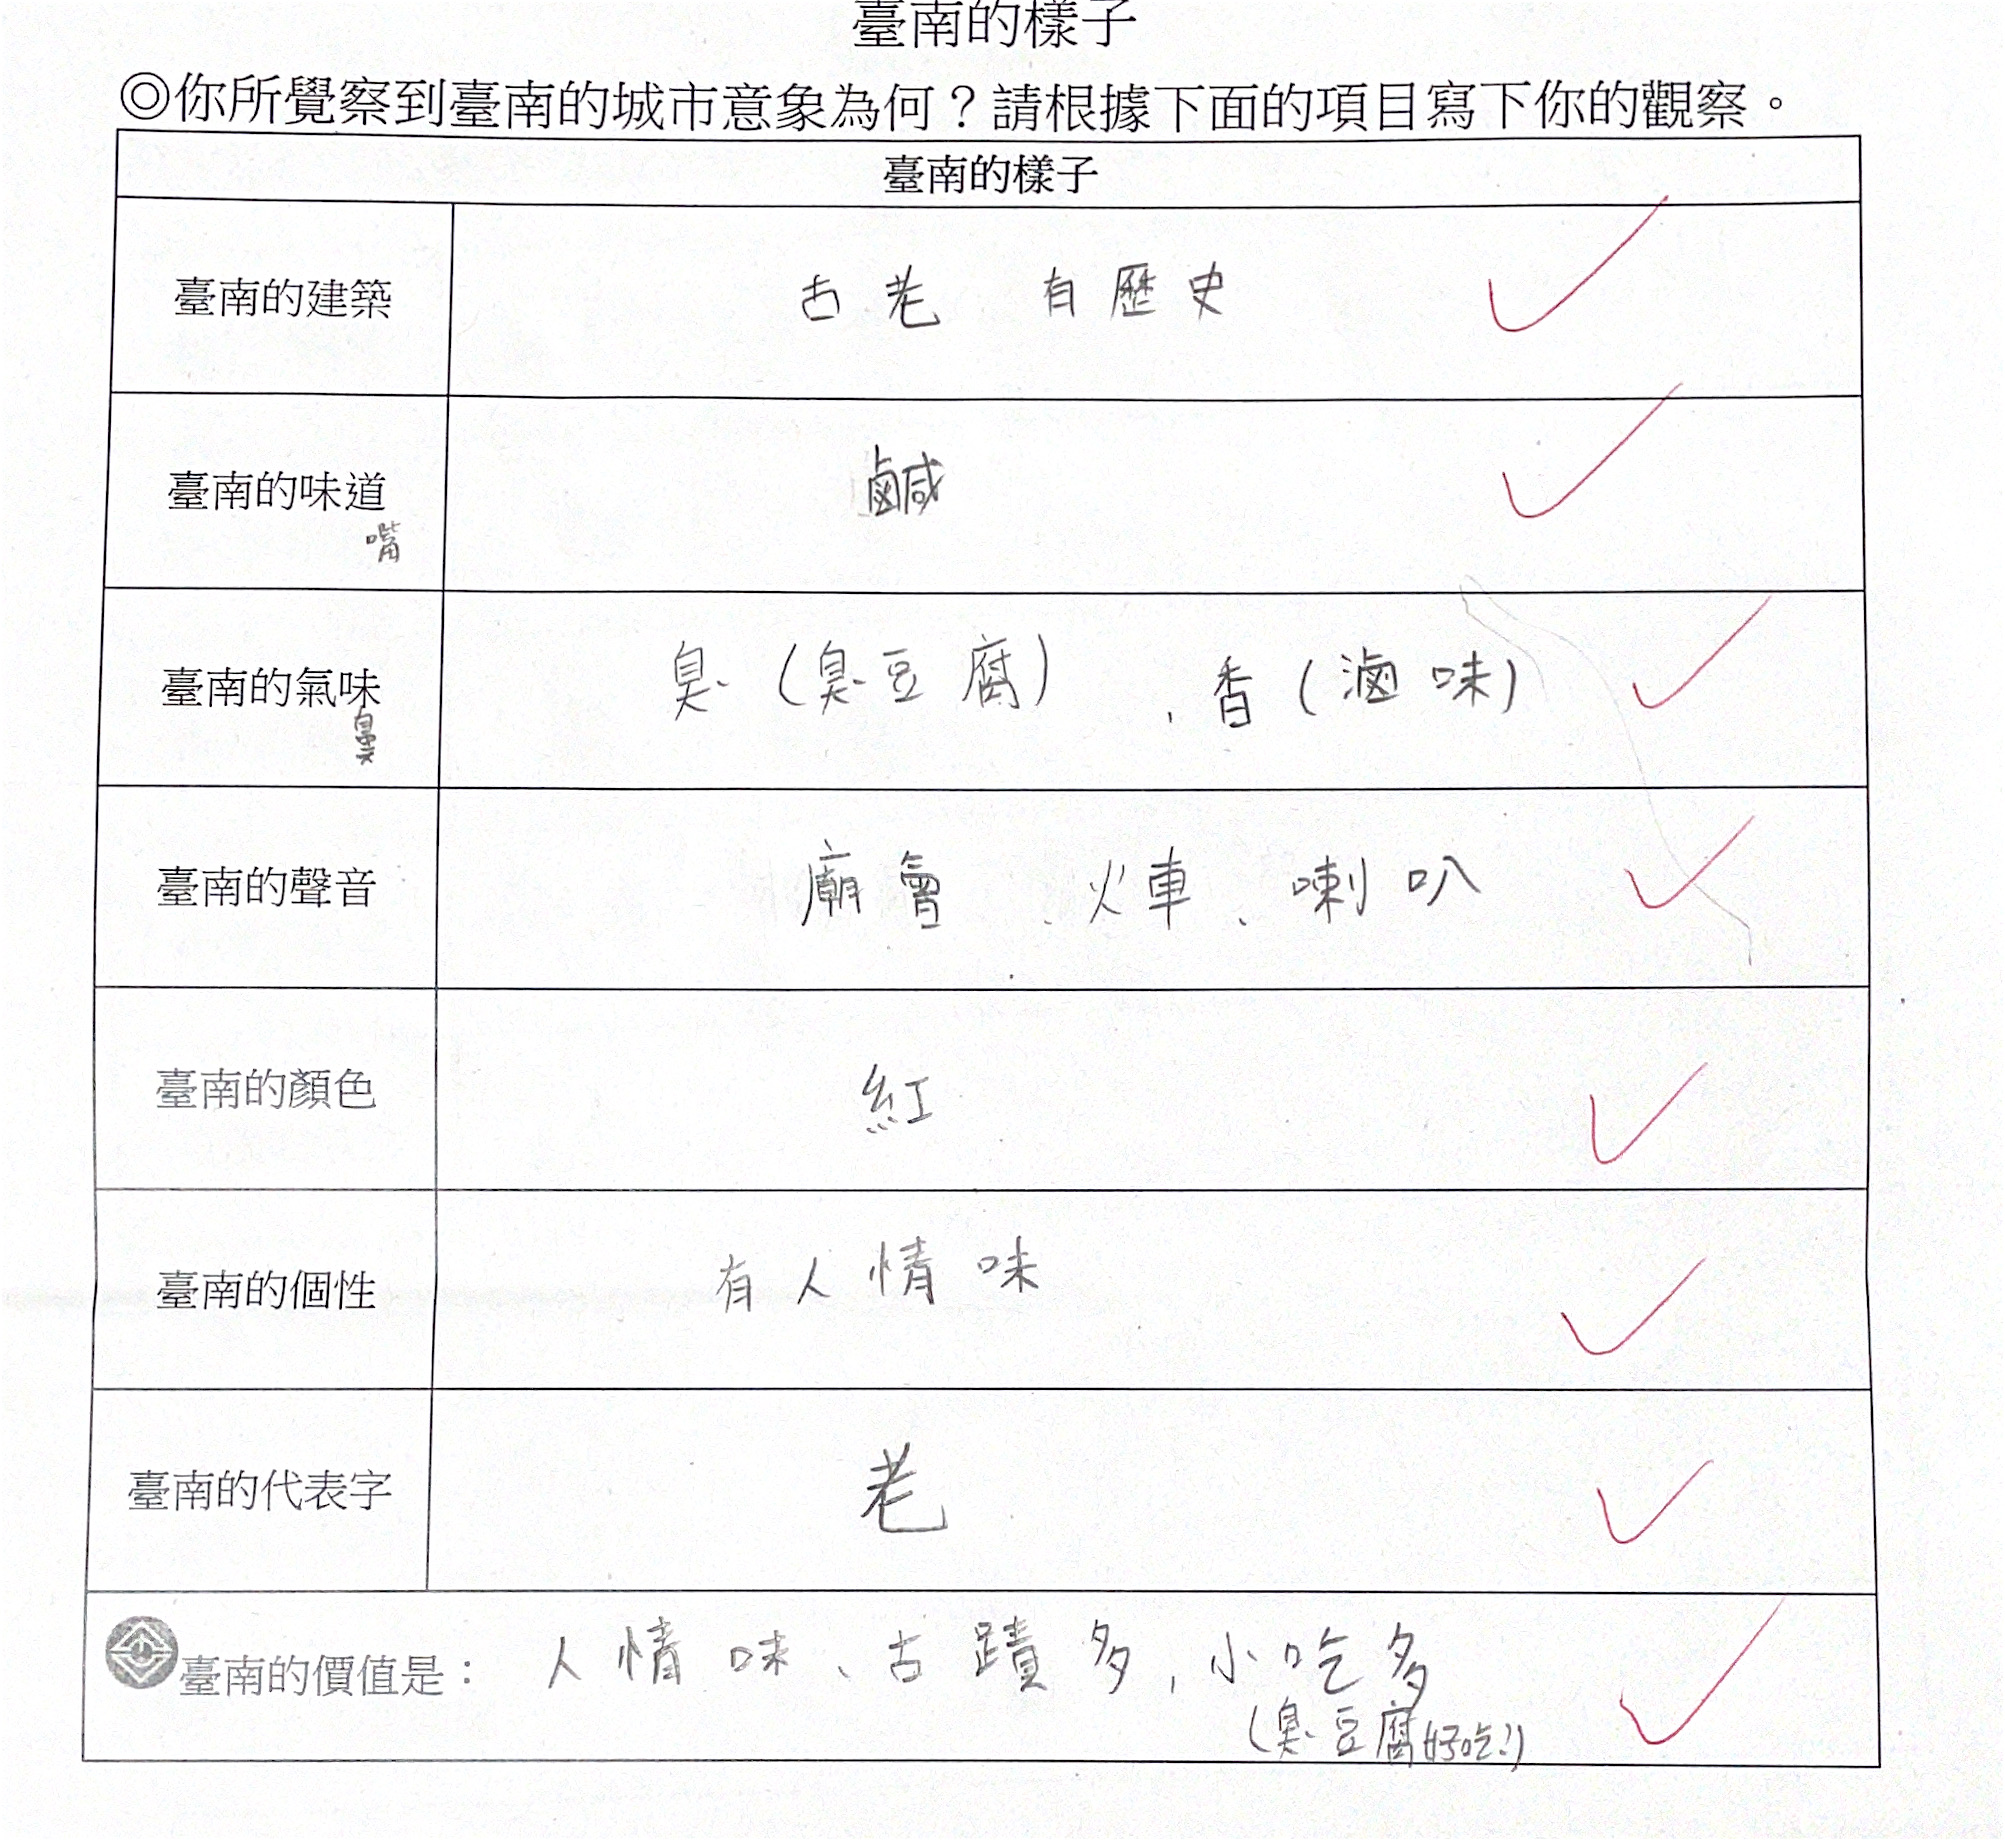 臺南的樣子
◎你所覺察到臺南的城市意象為何？請根據下面的項目寫下你的觀察。
臺南的樣子
臺南的建築 古老 有歷史
臺南的味道 鹹
嘴
臺南的氣味 臭（臭豆腐）、香（滷味）
鼻
臺南的聲音 廟會、火車、喇叭
臺南的顏色 紅
臺南的個性 有人情味
臺南的代表字 老
臺南的價值是： 人情味、古蹟多，小吃多
（臭豆腐好吃！）